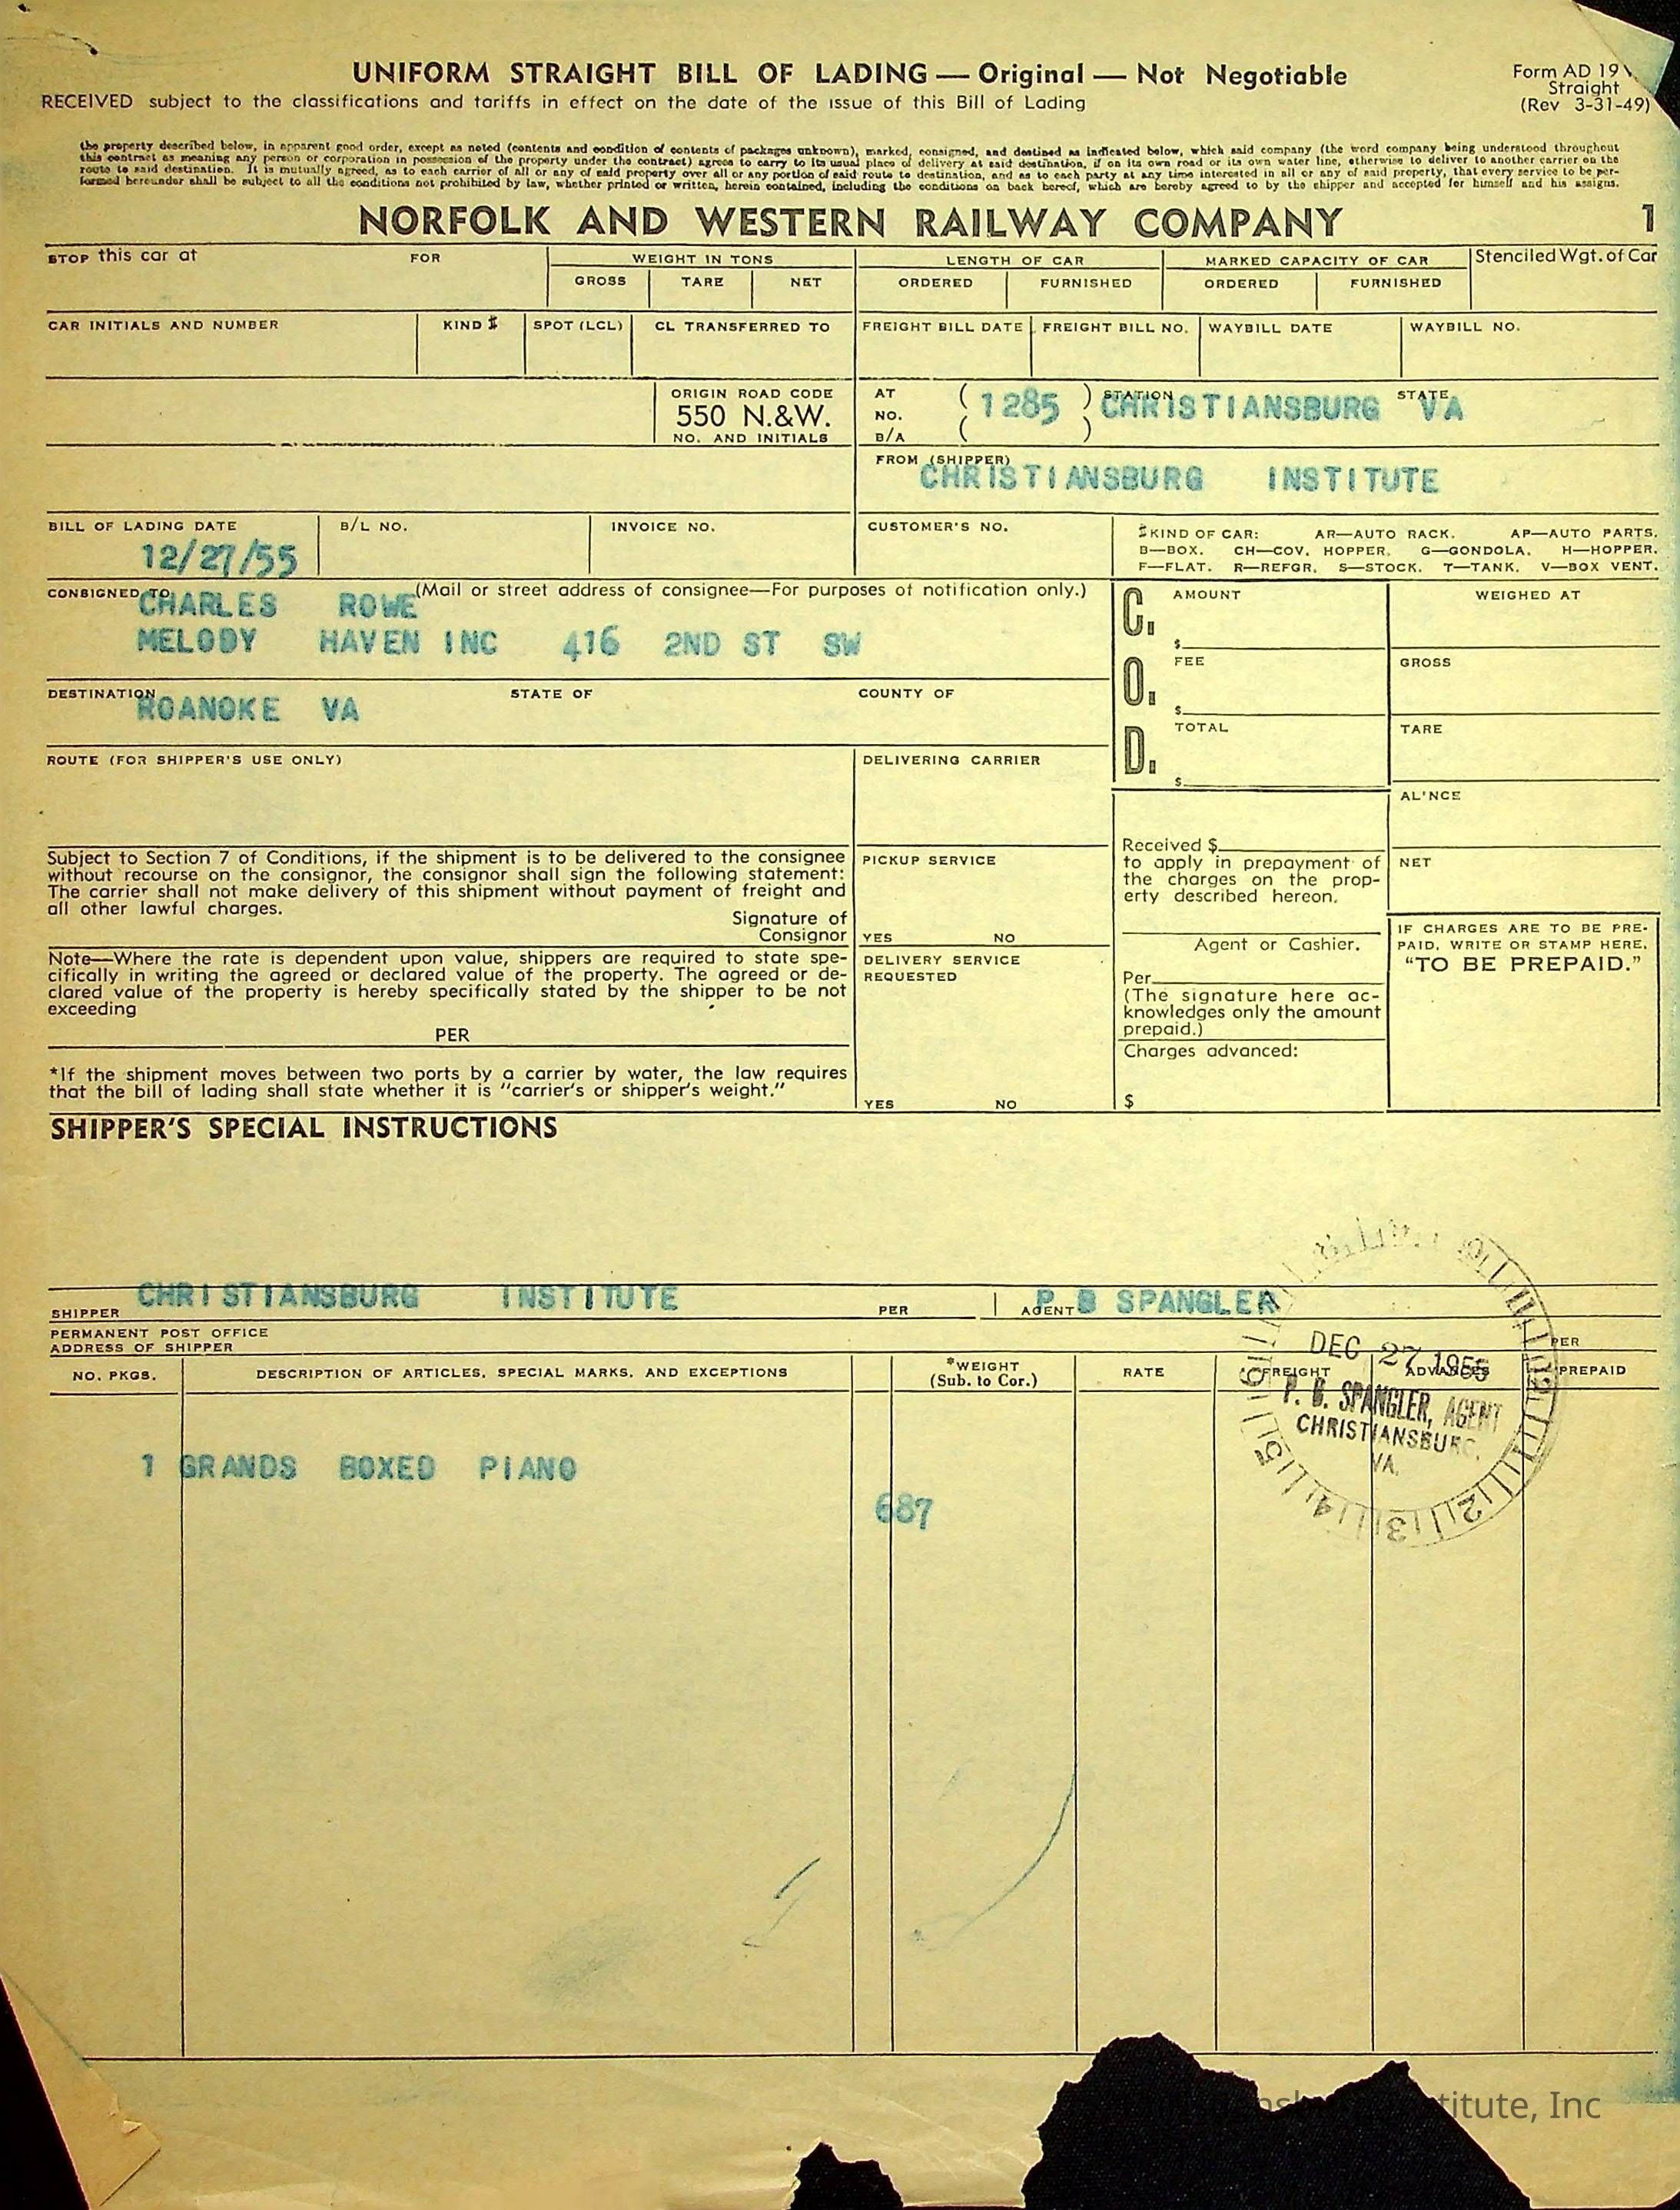 UNIFORM STRAIGHT BILL OF LADING — Original — Not Negotiable
Form AD 19
Straight
(Rev 3-31-49)
RECEIVED subject to the classifications and tariffs in effect on the date of the issue of this Bill of Lading
the property described below, in apparent good order, except as noted (contents and condition of contents of packages unknown), marked, consigned, and destined as indicated below, which said company (the word company being understood throughout
this contract as meaning any person or corporation in possession of the property under the contract) agrees to carry to its usual place of delivery at said destination, if on its own road or its own water line, otherwise to deliver to another carrier on the
route to said destination. It is mutually agreed, as to each carrier of all or any of said property over all or any portion of said route to destination, and as to each party at any time interested in all or any of said property, that every service to be per-
formed hereunder shall be subject to all the conditions not prohibited by law, whether printed or written, herein contained, including the conditions on back hereof, which are hereby agreed to by the shipper and accepted for himself and his assigns.
NORFOLK AND WESTERN RAILWAY COMPANY 1
STOP this car at FOR WEIGHT IN TONS LENGTH OF CAR MARKED CAPACITY OF CAR Stenciled Wgt. of Car
GROSS TARE NET ORDERED FURNISHED ORDERED FURNISHED
CAR INITIALS AND NUMBER KIND ‡ SPOT (LCL) CL TRANSFERRED TO FREIGHT BILL DATE FREIGHT BILL NO. WAYBILL DATE WAYBILL NO.
ORIGIN ROAD CODE
550 N.&W.
NO. AND INITIALS
AT ( 1285 ) STATION CHRISTIANSBURG STATE VA
NO.
B/A ( )
FROM (SHIPPER)
CHRISTIANSBURG INSTITUTE
BILL OF LADING DATE B/L NO. INVOICE NO. CUSTOMER'S NO.
12/27/55
‡KIND OF CAR: AR—AUTO RACK. AP—AUTO PARTS.
B—BOX. CH—COV. HOPPER. G—GONDOLA. H—HOPPER.
F—FLAT. R—REFGR. S—STOCK. T—TANK. V—BOX VENT.
CONSIGNED TO (Mail or street address of consignee—For purposes of notification only.)
CHARLES ROWE
MELODY HAVEN INC 416 2ND ST SW
DESTINATION STATE OF COUNTY OF
ROANOKE VA
C. O. D.
AMOUNT
$
FEE
$
TOTAL
$
WEIGHED AT
GROSS
TARE
AL'NCE
NET
ROUTE (FOR SHIPPER'S USE ONLY) DELIVERING CARRIER
Subject to Section 7 of Conditions, if the shipment is to be delivered to the consignee
without recourse on the consignor, the consignor shall sign the following statement:
The carrier shall not make delivery of this shipment without payment of freight and
all other lawful charges.
Signature of
Consignor
PICKUP SERVICE
YES NO
Received $
to apply in prepayment of
the charges on the prop-
erty described hereon.
Agent or Cashier.
Per
(The signature here ac-
knowledges only the amount
prepaid.)
Charges advanced:
$
IF CHARGES ARE TO BE PRE-
PAID, WRITE OR STAMP HERE,
“TO BE PREPAID.”
Note—Where the rate is dependent upon value, shippers are required to state spe-
cifically in writing the agreed or declared value of the property. The agreed or de-
clared value of the property is hereby specifically stated by the shipper to be not
exceeding
PER
DELIVERY SERVICE
REQUESTED
YES NO
*If the shipment moves between two ports by a carrier by water, the law requires
that the bill of lading shall state whether it is “carrier's or shipper's weight.”
SHIPPER'S SPECIAL INSTRUCTIONS
SHIPPER CHRISTIANSBURG INSTITUTE PER AGENT P B SPANGLER
PERMANENT POST OFFICE
ADDRESS OF SHIPPER
PER
NO. PKGS. DESCRIPTION OF ARTICLES, SPECIAL MARKS, AND EXCEPTIONS *WEIGHT (Sub. to Cor.) RATE FREIGHT ADVANCES PREPAID
DEC 27 1955
P. B. SPANGLER, AGENT
CHRISTIANSBURG,
VA.
1 GRANDS BOXED PIANO
687